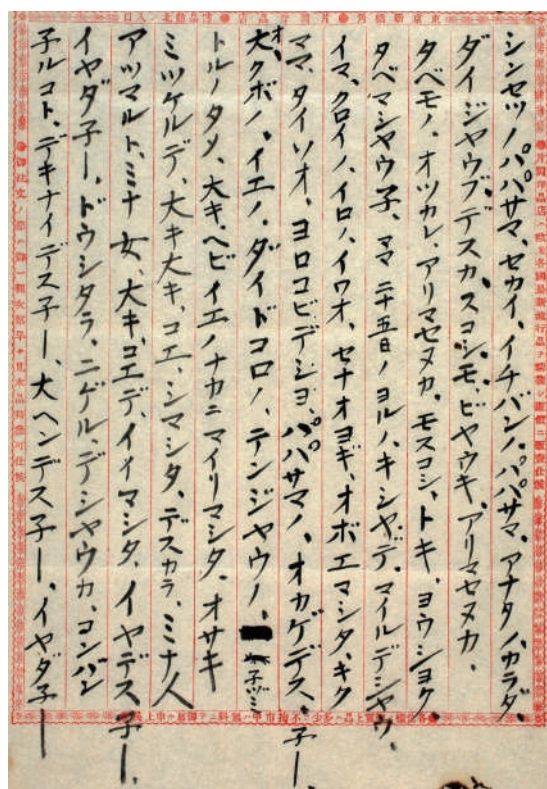 シンセツノ、パパサマ、セカイ、イチバンノ、パパサマ、アナタノ、カラダ、
ダイジヤウブデスカ、スコシモ、ビヤウキ、アリマセヌカ、
タベモノ、オツカレ、アリマセヌカ、モスコシ、トキ、ヨウシヨク、
タベマシヤウ子、ママ 二十五日ノヨルノ、キシヤデ、マイルデシヤウ、
イマ、クロイノ、イロノ、イワオ、セナオヨギ、オボエマシタ、キク
ママ、タイソオ、ヨロコビデシヨ、パパサマノ、オカゲデス、子ー、
大クボノ、イエノ、ダイドコロノ、テンジヤウノ、子ヅミ
トルノタメ、大キ、ヘビイエノナカニマイリマシタ、オサキ
ミツケルデ、大キ大キ、コエ、シマシタ、デスカラ、ミナ人
アツマルト、ミナ女、大キ、コエデ、イイマシタ、イヤデス子ー、
イヤダ子ー、ドウシタラ、ニゲル、デシヤウカ、コンバン
子ルコト、デキナイデス子ー、大ヘンデス子ー、イヤダ子ー